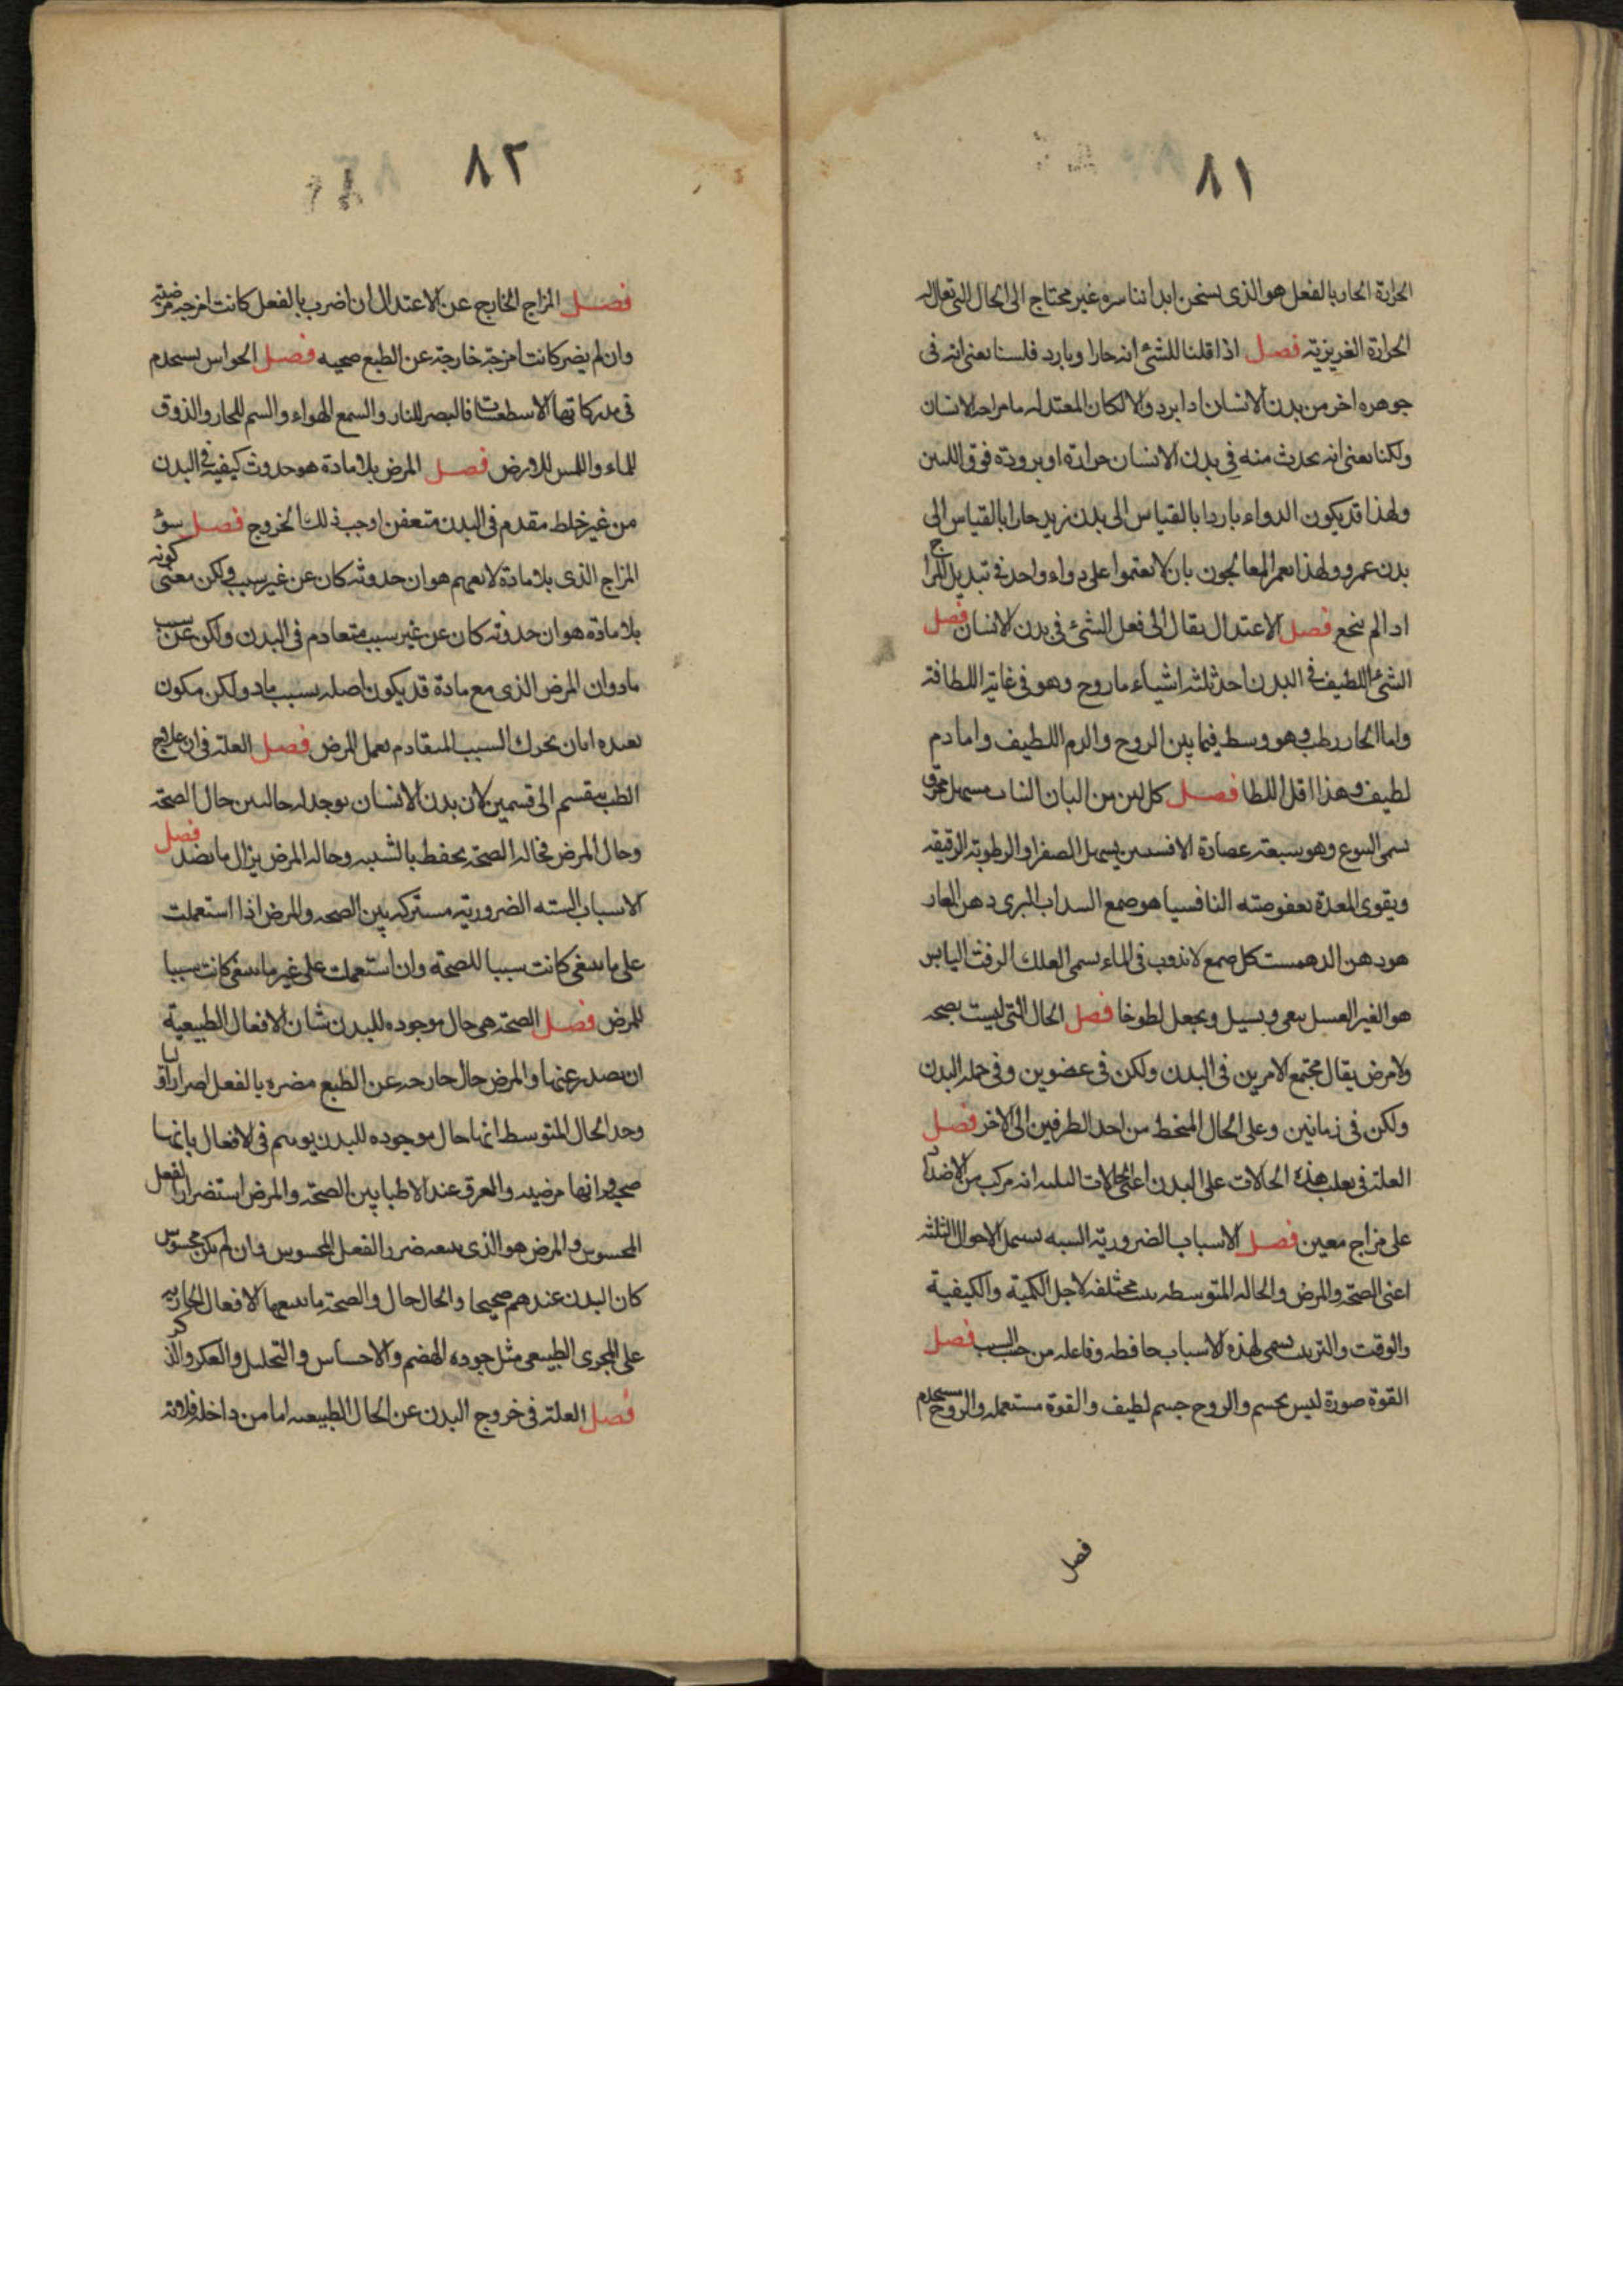 ٨١
الحرارة الحار بالفعل هو الذى يسخن ابداننا غير محتاج الى الحال التى
الحرارة الغريزية فصل اذا قلنا للشئ انه حار او بارد فلسنا نعنى انه فى
جوهره اخر من بدن الانسان او ابرد والا لكان المعتدل الانسان
ولكنا نعنى انه يحدث منه فى بدن الانسان حرارة او برودة فوق اللتين
ولهذا قد يكون الدواء باردا بالقياس الى بدن زيد حارا بالقياس الى
بدن عمرو ولهذا المعالجون بان لا على دواء واحد فى تبديل المزاج
اذا لم ينجع فصل الاعتدال يقال الى فعل الشئ فى بدن الانسان فصل
الشئ اللطيف فى البدن احد ثلثه اشياء ما روح وهو فى غاية اللطافة
واما بخار رطب وهو وسط فيما بين الروح والدم اللطيف واما دم
لطيف وهذا اقل اللطا فصل كل لبن من البان النبات مسهل محرق
سمى اليتوع وهو سبعة عصارة الافسنتين يسهل الصفرا والرطوبة الرقيقه
ويقوى المعدة بعفوصته النافسيا هو صمغ السداب البرى دهن الغار
هو دهن الدهمست كل صمغ لا يذوب فى الماء يسمى العلك الزفت اليابس
هو القير العسل ويسيل ويجعل لطوخا فصل الحال التى ليست بصحه
ولا مرض يقال مجتمع الامرين فى البدن ولكن فى عضوين وفى جملة البدن
ولكن فى زمانين وعلى الحال المنحط من احد الطرفين الى الاخر فصل
العلة فى هذه الحالات على البدن اعنى الحالات الثلثه انه مركب من الاضداد
على مزاج معين فصل الاسباب الضرورية الستة الاحوال الثلثه
اعنى الصحة والمرض والحالة المتوسطه مختلفه لاجل الكمية والكيفية
والوقت والترتيب سمى لهذه الاسباب حافظه وفاعله من جنب السبب فصل
القوة صورة ليس بجسم والروح جسم لطيف والقوة مستعمله والروح مستخدم
فصل
٨٢
فصل المزاج الخارج عن الاعتدال ان اضر بالفعل كانت امزجه مرضية
وان لم يضر كانت امزجة خارجة عن الطبع صحيه فصل الحواس يستخدم
فى مدركاتها الاسطقسات فالبصر للنار والسمع للهواء والشم للبخار والذوق
للماء واللمس للارض فصل المرض بلا مادة هو حدوث كيفية فى البدن
من غير خلط مقدم فى البدن متعفن اوجب ذلك الخروج فصل سوء
المزاج الذى بلا مادة لا يفهم هو ان حدوثه كان عن غير سبب ولكن معنى كونه
بلا مادة هو ان حدوثه كان عن غير سبب متقادم فى البدن ولكن عن سبب
باد وان المرض الذى مع مادة قد يكون اصله بسبب باد ولكن يكون
بان يحرك السبب المتقادم يعمل المرض فصل العلة فى ان علاج
الطب ينقسم الى قسمين لان بدن الانسان يوجد له حالتين حال الصحة
وحال المرض فحالة الصحة يحفظ بالشبيه وحاله المرض يزال بالضد فصل
الاسباب الستة الضرورية مشتركه بين الصحه والمرض اذا استعملت
على ما ينبغى كانت سببا للصحة وان استعملت على غير ما ينبغى كانت سببا
للمرض فصل الصحة هى حال موجوده للبدن شان الافعال الطبيعية
ان يصدر عنها والمرض حال خارجه عن الطبع مضره بالفعل
وحد الحال المتوسط انها حال موجوده للبدن فى الافعال بانها
صحيه وانها مرضيه والفرق عند الاطبا بين الصحة والمرض استضرار الفعل
المحسوس والمرض هو الذى يتبعه ضرر الفعل المحسوس وان لم يكن محسوس
كان البدن عندهم صحيحا والحال حال والصحة ما يتبعها الافعال الجاريه
على المجرى الطبيعى مثل جوده الهضم والاحساس والتخيل والفكر والذكر
فصل العلة فى خروج البدن عن الحال الطبيعيه اما من داخل فلانه